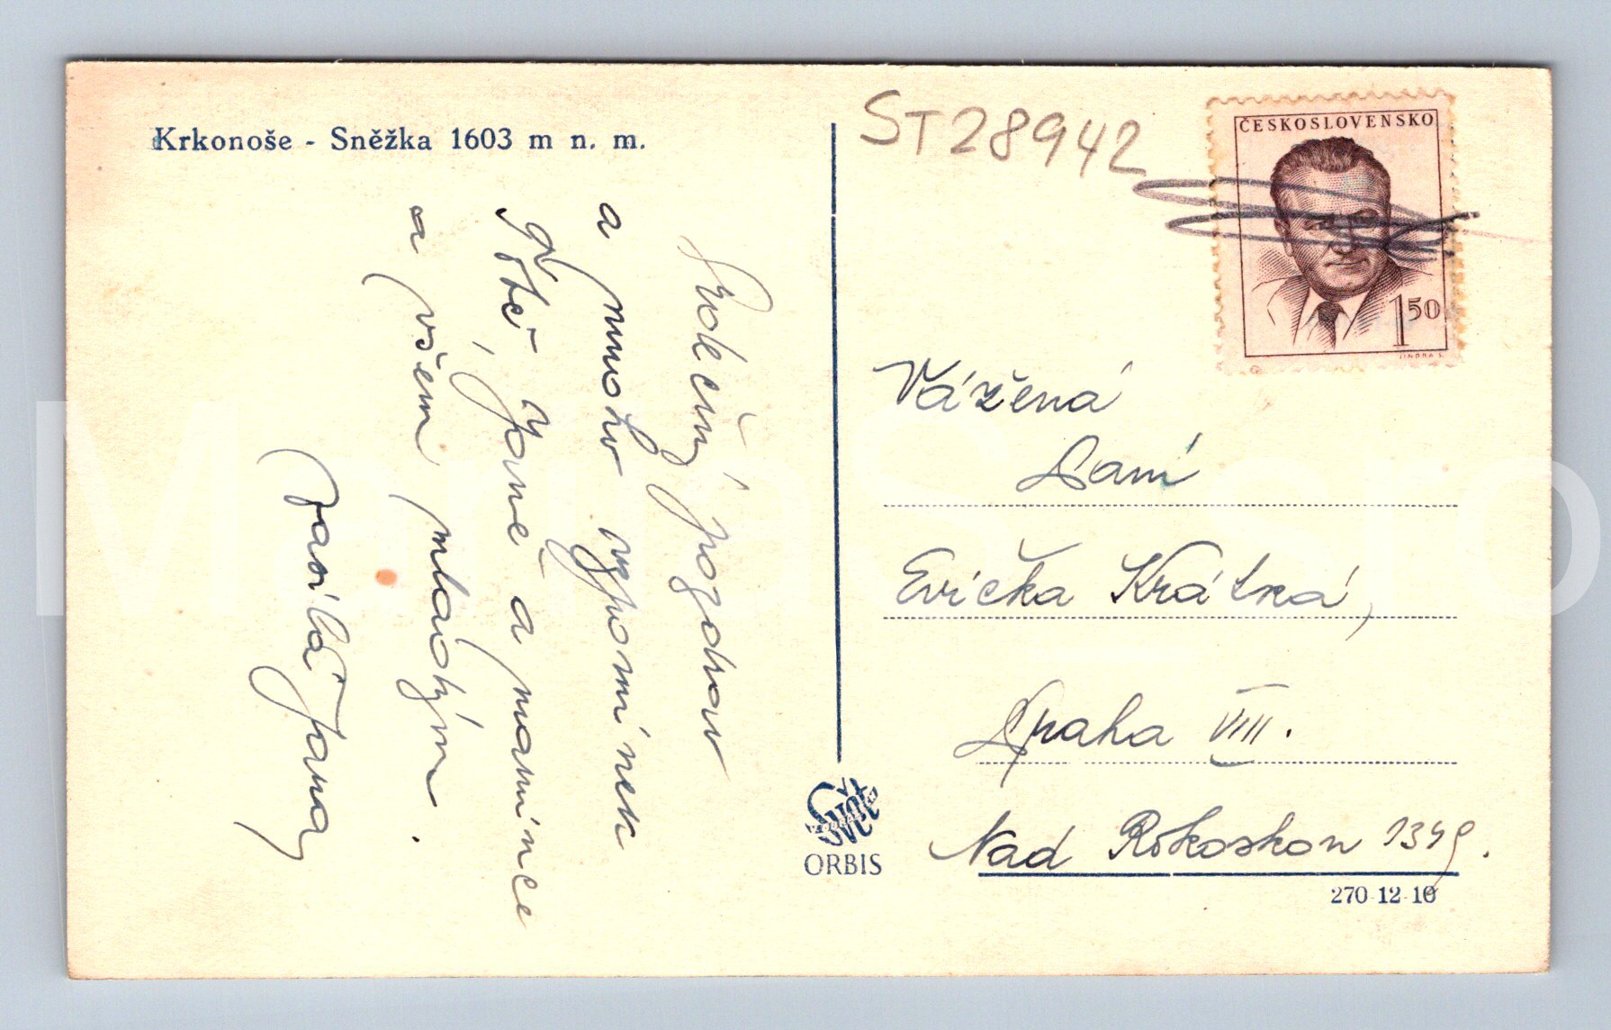 Krkonoše - Sněžka 1603 m n. m.
Srdečný pozdrav
a mnoho vzpomínek
Tobě, Janě a mamince
a všem mladým.
Jana
ST28942
ČESKOSLOVENSKO
150
JINDRA S.
Vážená
Paní
Evička Krátká,
Praha VIII.
Nad Rokoskou 1349.
Svět
ORBIS
270 12 10